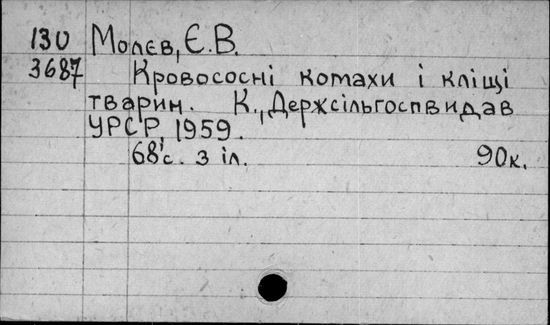 130 Молєв, Є. В.
3687 Кровососні комахи і кліщі
тварин. К., Держсільгоспвидав
УРСР, 1959.
68 с. з іл. 90к.